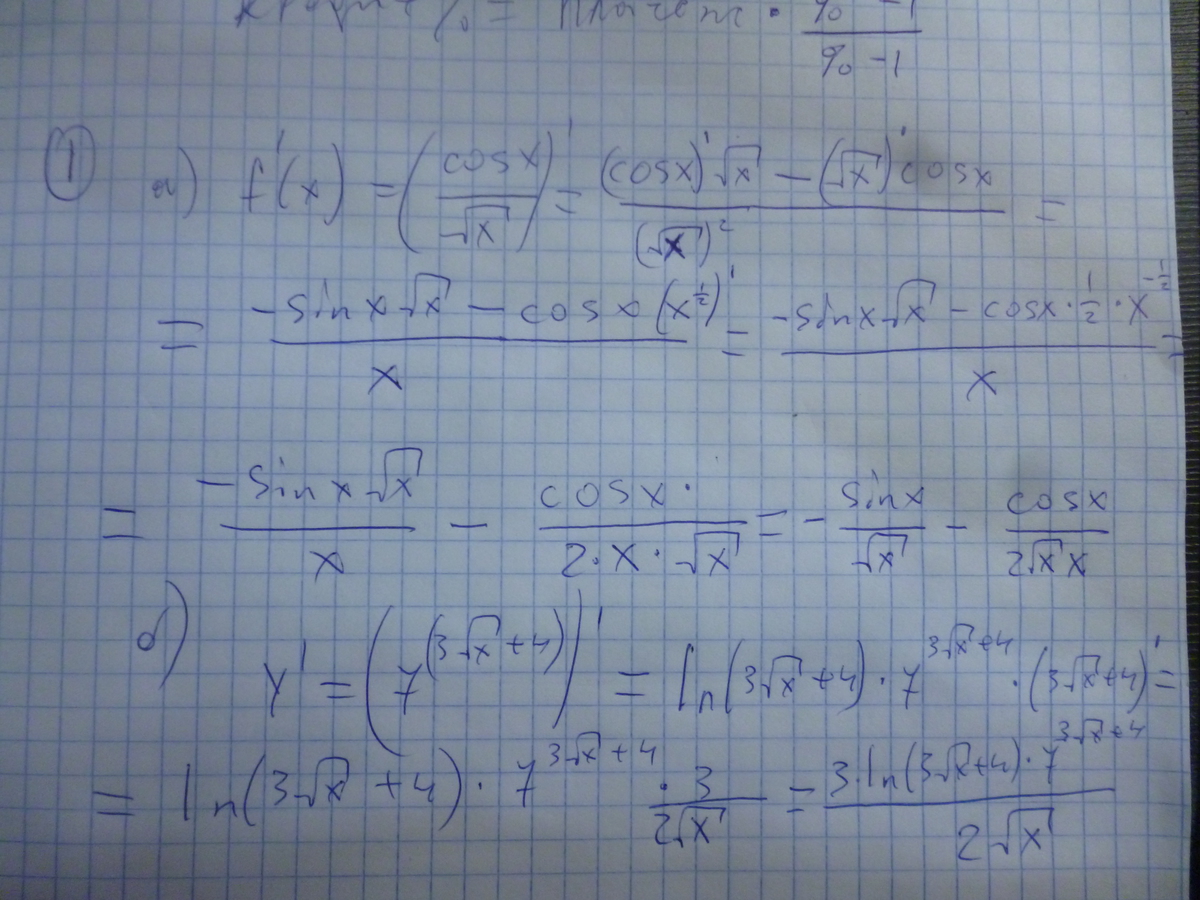 % = платеж · % -1 / % -1
① а) f'(x) = (cosx / √x)' = ((cosx)' √x − (√x)' cosx) / (√x)² =
= (-sinx √x − cosx (x^(1/2))') / x = (-sinx √x − cosx · 1/2 · x^(-1/2)) / x =
= (-sinx √x) / x − (cosx ·) / (2·x·√x) = - sinx / √x - cosx / (2√x x)
б) y' = (7^(3√x+4))' = ln(3√x+4) · 7^(3√x+4) · (3√x+4)' =
= ln(3√x+4) · 7^(3√x+4) · 3 / (2√x) = (3·ln(3√x+4)·7^(3√x+4)) / (2√x)